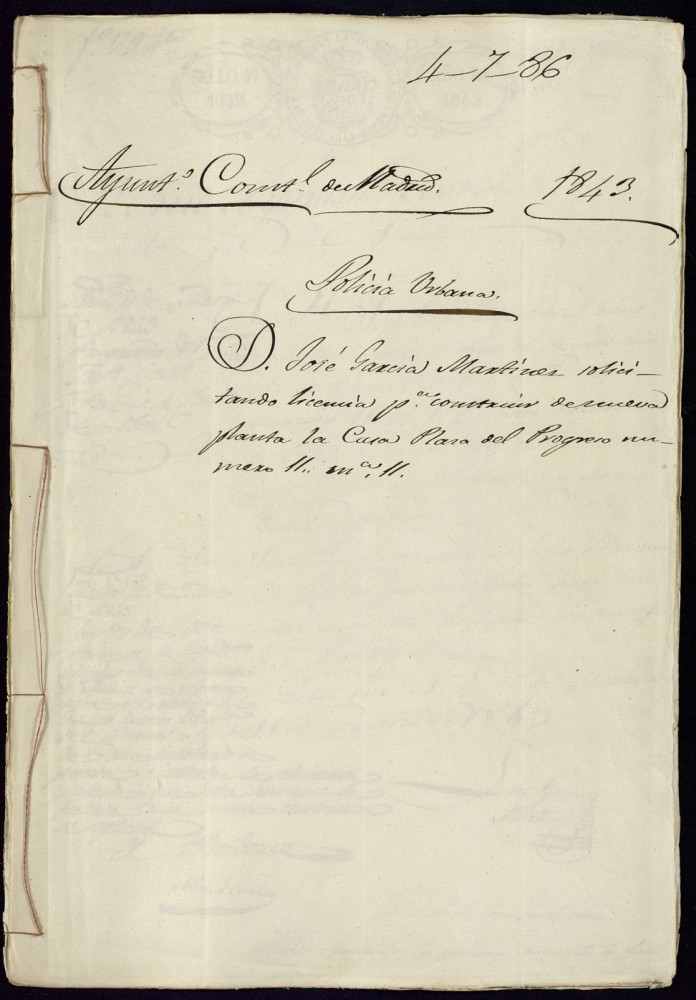 4-7-86
Ayunt.º Const.l de Madrid. 1843.
Policia Urbana.
D. José Garcia Martinez solici-
tando licencia p.ª construir de nueva
planta la Casa Plaza del Progreso nu-
mero 11. m.ª 11.